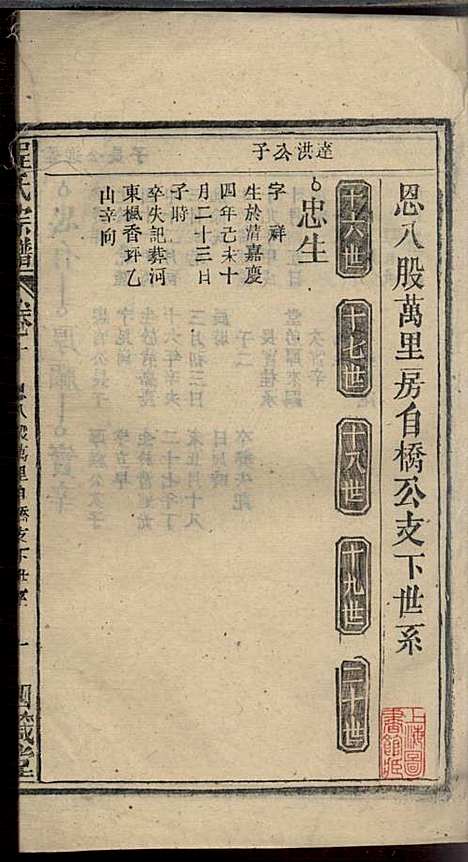 恩八股萬里房自橋公支下世系
十六世
十七世
十八世
十九世
二十世
達洪公子
忠生
字祥
生於清嘉慶
四年己未十
月二十三日
子時
卒失記葬河
東楓香坪乙
山辛向
氏宗譜
卷十
恩八股萬里自橋支下世系
一
上海圖
書館藏